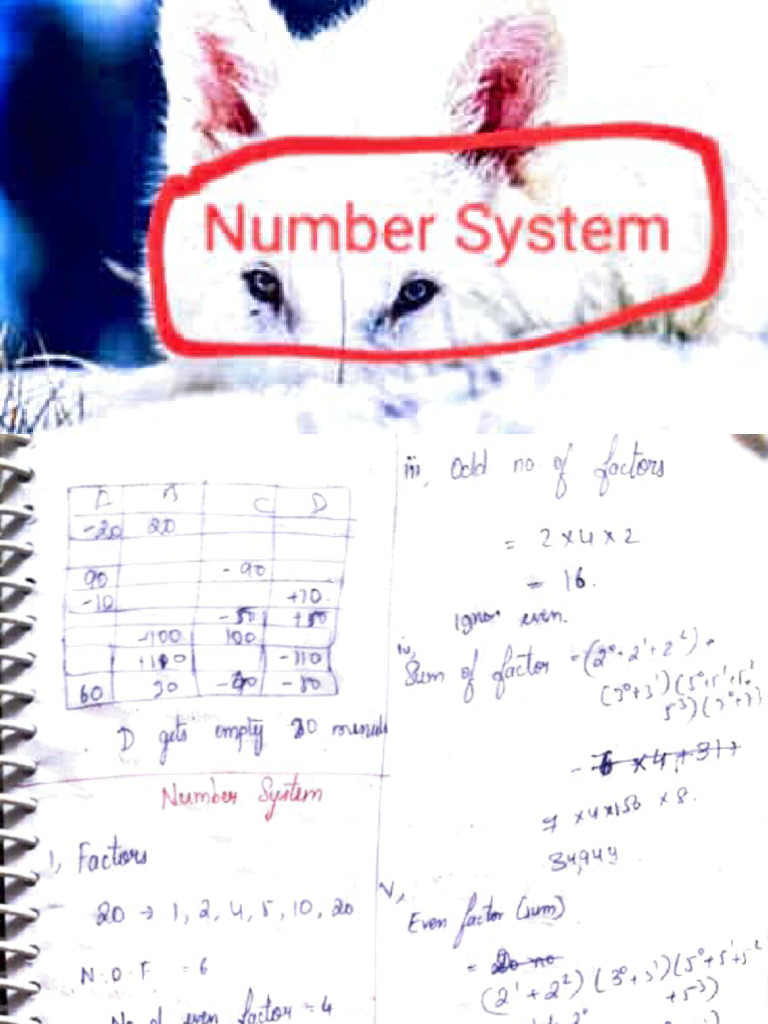 Number System
C D
-20 20
90 -90
-10 +10
-50 +50
-100 100
+110 -110
60 30 -80
D gets empty
Number System
1, Factors
20 → 1, 2, 4, 5, 10, 20
N.O.F. = 6
No of even factor = 4
iii, Odd no of factors
= 2 × 4 × 2
= 16.
Ignor even.
iv, Sum of factor = (2⁰+2¹+2²)
(3⁰+3¹)(5⁰+5¹+5²+
5³)(7⁰+7¹)
7 × 4 × 156 × 8.
34,944
V,
Even factor (sum)
=
(2¹+2²)(3⁰+3¹)(5⁰+5¹+5²
+5³)